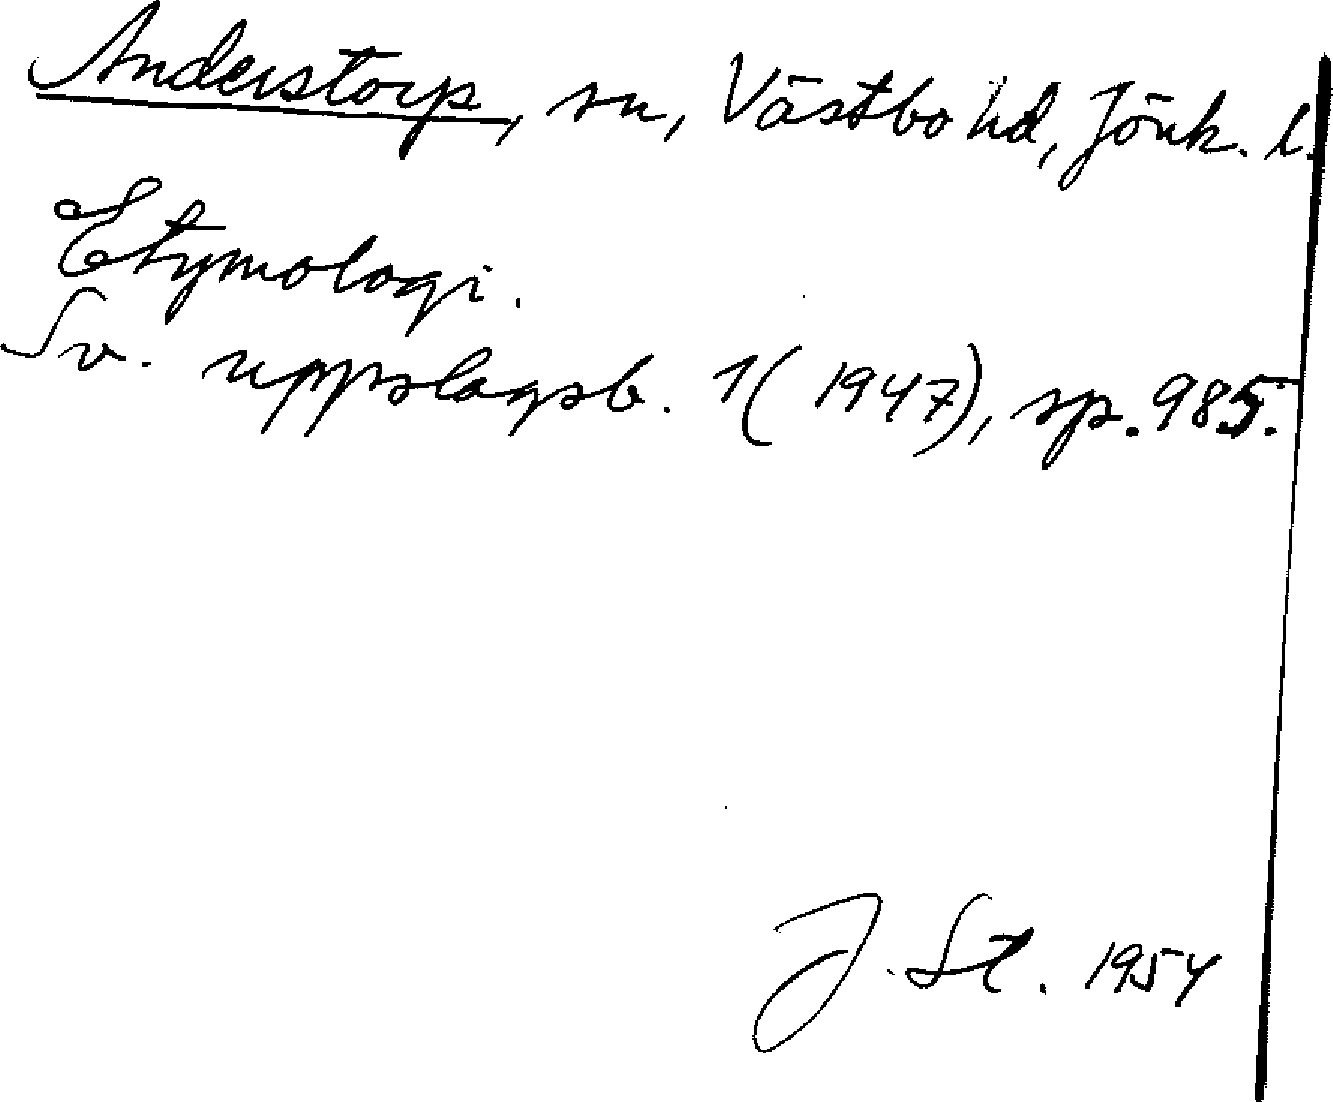 Anderstorp, sn, Västbo hd, Jönk. l.
Etymologi.
Sv. uppslagsb. 1 (1947), sp. 985.
J. St. 1954